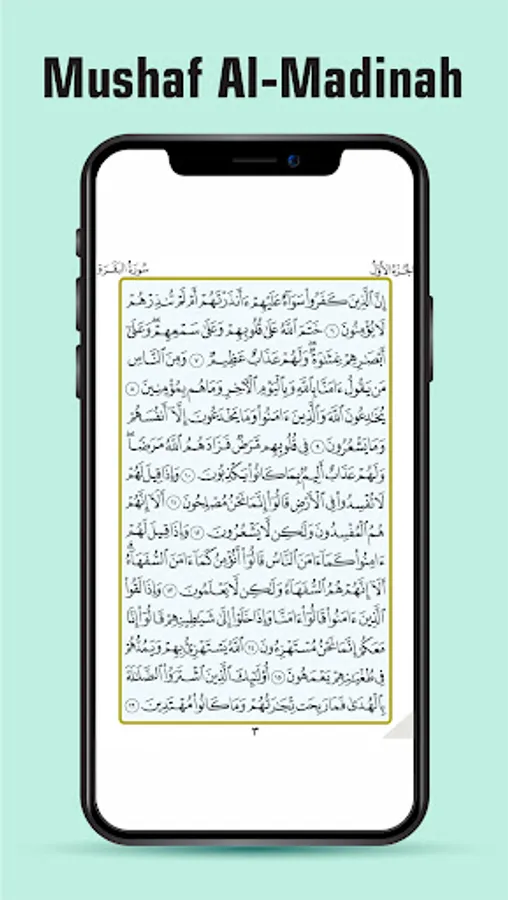 Mushaf Al-Madinah
سُورَةُ البَقَرَة الجُزْءُ الأَوَّلُ
إِنَّ ٱلَّذِينَ كَفَرُوا۟ سَوَآءٌ عَلَيْهِمْ ءَأَنذَرْتَهُمْ أَمْ لَمْ تُنذِرْهُمْ
لَا يُؤْمِنُونَ ٦ خَتَمَ ٱللَّهُ عَلَىٰ قُلُوبِهِمْ وَعَلَىٰ سَمْعِهِمْ ۖ وَعَلَىٰٓ
أَبْصَـٰرِهِمْ غِشَـٰوَةٌ ۖ وَلَهُمْ عَذَابٌ عَظِيمٌ ٧ وَمِنَ ٱلنَّاسِ
مَن يَقُولُ ءَامَنَّا بِٱللَّهِ وَبِٱلْيَوْمِ ٱلْـَٔاخِرِ وَمَا هُم بِمُؤْمِنِينَ ٨
يُخَـٰدِعُونَ ٱللَّهَ وَٱلَّذِينَ ءَامَنُوا۟ وَمَا يَخْدَعُونَ إِلَّآ أَنفُسَهُمْ
وَمَا يَشْعُرُونَ ٩ فِى قُلُوبِهِم مَّرَضٌ فَزَادَهُمُ ٱللَّهُ مَرَضًا ۖ
وَلَهُمْ عَذَابٌ أَلِيمٌۢ بِمَا كَانُوا۟ يَكْذِبُونَ ١٠ وَإِذَا قِيلَ لَهُمْ
لَا تُفْسِدُوا۟ فِى ٱلْأَرْضِ قَالُوٓا۟ إِنَّمَا نَحْنُ مُصْلِحُونَ ١١ أَلَآ إِنَّهُمْ
هُمُ ٱلْمُفْسِدُونَ وَلَـٰكِن لَّا يَشْعُرُونَ ١٢ وَإِذَا قِيلَ لَهُمْ
ءَامِنُوا۟ كَمَآ ءَامَنَ ٱلنَّاسُ قَالُوٓا۟ أَنُؤْمِنُ كَمَآ ءَامَنَ ٱلسُّفَهَآءُ ۗ
أَلَآ إِنَّهُمْ هُمُ ٱلسُّفَهَآءُ وَلَـٰكِن لَّا يَعْلَمُونَ ١٣ وَإِذَا لَقُوا۟
ٱلَّذِينَ ءَامَنُوا۟ قَالُوٓا۟ ءَامَنَّا وَإِذَا خَلَوْا۟ إِلَىٰ شَيَـٰطِينِهِمْ قَالُوٓا۟ إِنَّا
مَعَكُمْ إِنَّمَا نَحْنُ مُسْتَهْزِءُونَ ١٤ ٱللَّهُ يَسْتَهْزِئُ بِهِمْ وَيَمُدُّهُمْ
فِى طُغْيَـٰنِهِمْ يَعْمَهُونَ ١٥ أُو۟لَـٰٓئِكَ ٱلَّذِينَ ٱشْتَرَوُا۟ ٱلضَّلَـٰلَةَ
بِٱلْهُدَىٰ فَمَا رَبِحَت تِّجَـٰرَتُهُمْ وَمَا كَانُوا۟ مُهْتَدِينَ ١٦
٣